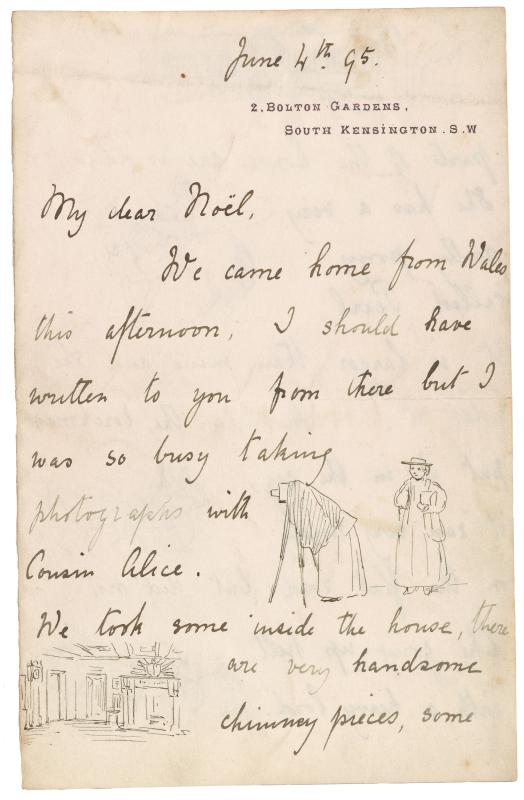 June 4th 95.
2. BOLTON GARDENS,
SOUTH KENSINGTON. S.W
My dear Noël,
We came home from Wales
this afternoon, I should have
written to you from there but I
was so busy taking
photographs with
Cousin Alice.
We took some inside the house, there
are very handsome
chimney pieces, some